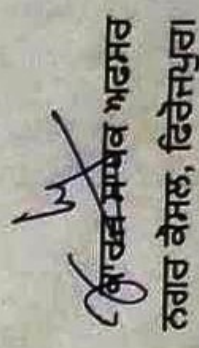 ਕਾਰਜ ਸਾਧਕ ਅਫਸਰ
ਨਗਰ ਕੌਂਸਲ, ਫਿਰੋਜਪੁਰ।